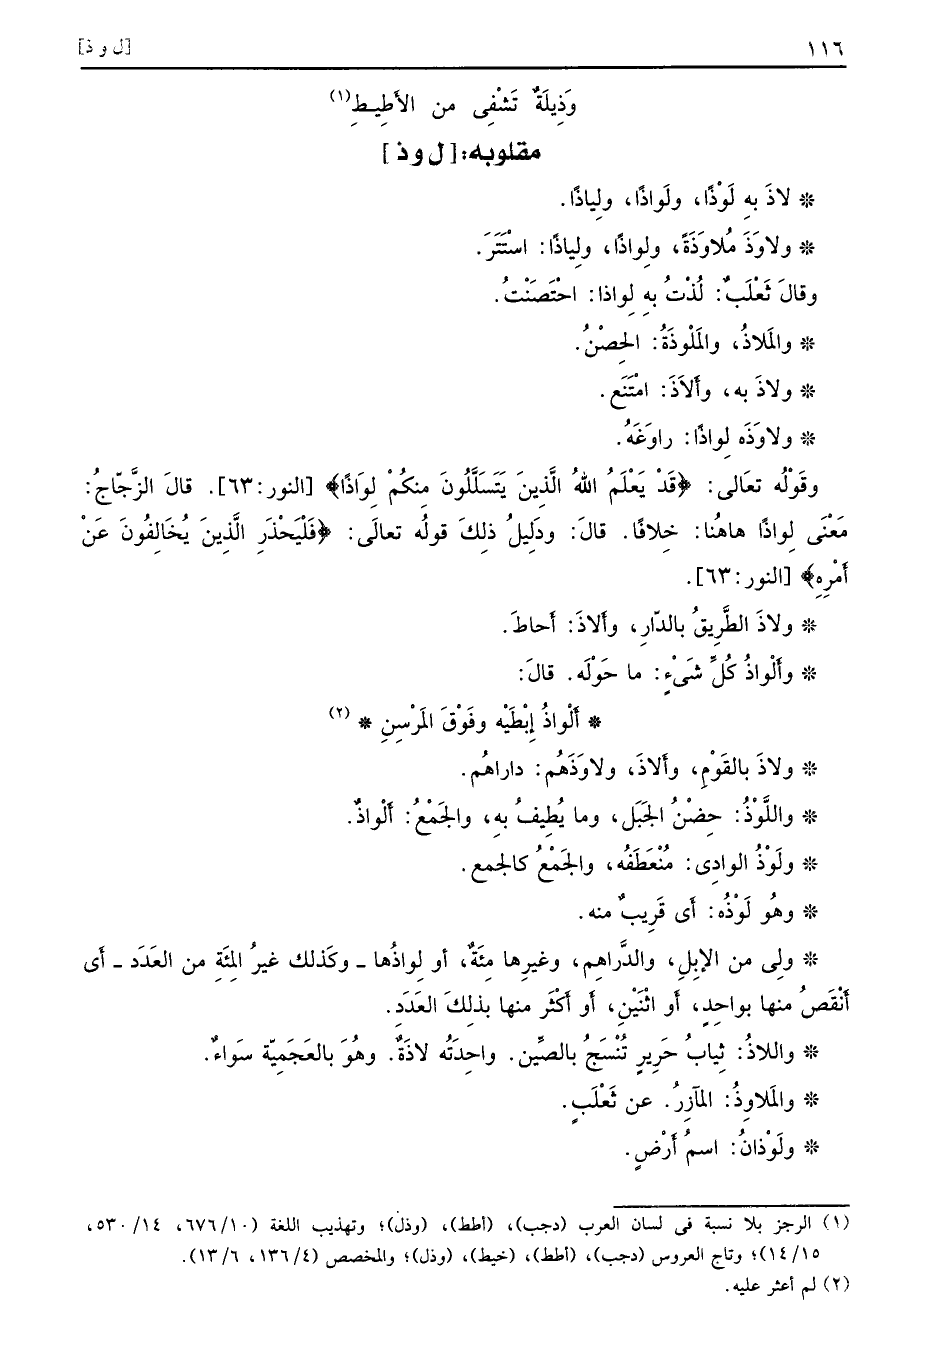 ١١٦ [ل و ذ]
وَذِيلَةٌ تَشْفِى من الأَطِيـطِ(١)
مقلوبه: [ ل و ذ ]
* لاذَ بِه لَوْذًا، ولَواذًا، ولِياذًا.
* ولاوَذَ مُلاوَذَةً، ولِواذًا، ولِياذًا: اسْتَتَرَ.
وقالَ ثَعْلَبٌ: لُذْتُ بِه لِواذا: احْتَصَنْتُ.
* والمَلاذُ، والمَلْوذَةُ: الحِصْنُ.
* ولاذَ به، وأَلاَذَ: امْتَنَع.
* ولاوَذَه لِواذًا: راوَغَهُ.
وقَوْلُه تعَالى: ﴿قَدْ يَعْلَمُ اللهُ الَّذِينَ يَتَسَلَّلُونَ مِنكُمْ لِوَاذًا﴾ [النور: ٦٣]. قالَ الزَّجّاجُ:
مَعْنَى لِواذًا هاهُنا: خِلافًا. قالَ: ودَلِيلُ ذلِكَ قولُه تعالَى: ﴿فَلْيَحْذَرِ الَّذِينَ يُخَالِفُونَ عَنْ
أَمْرِهِ﴾ [النور: ٦٣].
* ولاذَ الطَّرِيقُ بالدّارِ، وأَلاذَ: أَحاطَ.
* وأَلْواذُ كُلِّ شَىْءٍ: ما حَوْلَه. قالَ:
* أَلْواذُ إِبْطَيْه وفَوْقَ المَرْسِنِ * (٢)
* ولاذَ بالقَوْمِ، وأَلاذَ، ولاوَذَهُم: داراهُم.
* واللَّوْذُ: حِضْنُ الجَبَلِ، وما يُطِيفُ بِه، والجَمْعُ: أَلْواذٌ.
* ولَوْذُ الوادِى: مُنْعَطَفُه، والجَمْعُ كالجمع.
* وهُو لَوْذُه: أَى قَرِيبٌ منه.
* ولِى من الإبِلِ، والدَّراهِمِ، وغيرِها مِئَةٌ، أو لِواذُها ـ وكَذلك غيرُ المِئَةِ من العَدَد ـ أى
أَنْقَصُ منها بواحِدٍ، أو اثْنَيْنِ، أو أَكْثَر منها بذلِكَ العَدَدِ.
* واللاذُ: ثِيابُ حَرِيرٍ تُنْسَجُ بالصِّين. واحِدَتُه لاذَةٌ. وهُوَ بالعَجَمِيّة سَواءٌ.
* والمَلاوِذُ: المآزِرُ. عن ثَعْلَبٍ.
* ولَوْذانُ: اسمُ أَرْضٍ.
(١) الرجز بلا نسبة فى لسان العرب (دجب)، (أطط)، (وذل)؛ وتهذيب اللغة (١٠/٦٧٦، ١٤/٥٣٠،
١٥/١٤)؛ وتاج العروس (دجب)، (أطط)، (خيط)، (وذل)؛ والمخصص (٤/١٣٦، ٦/١٣).
(٢) لم أعثر عليه.